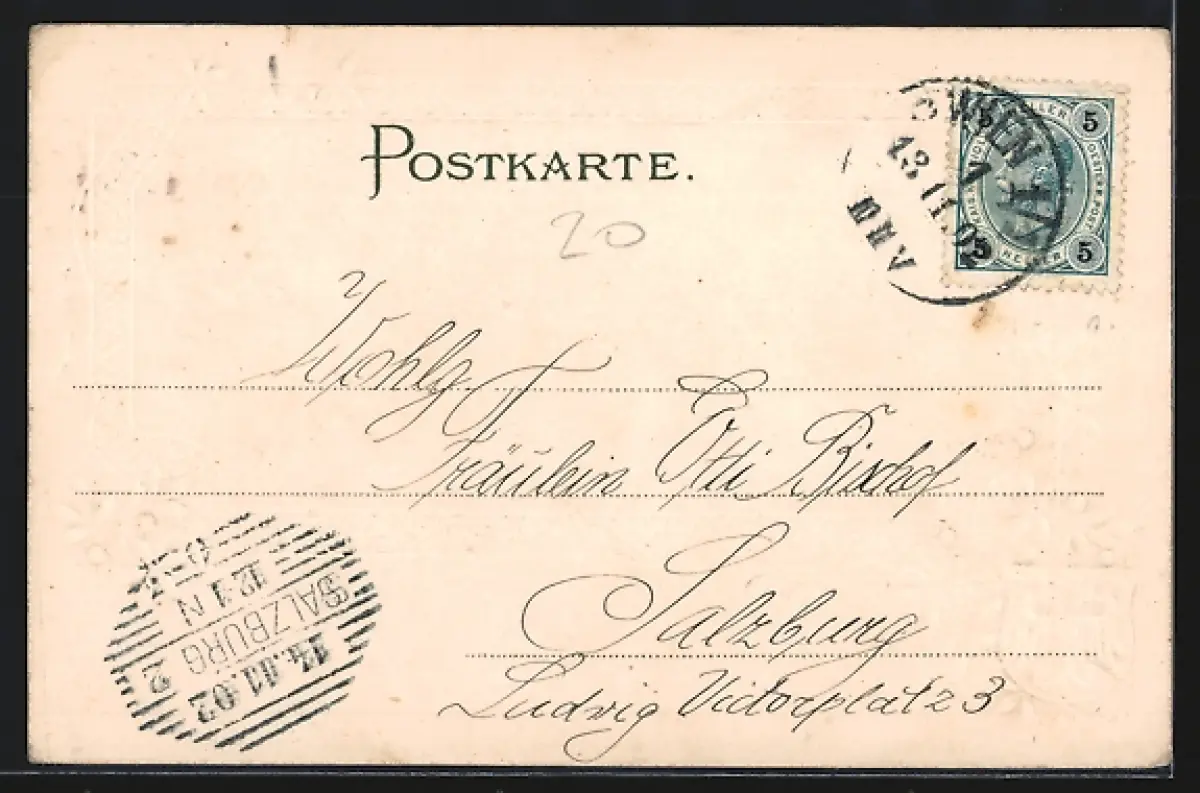 POSTKARTE.
20
WIEN
1
13 11 02
5 5
HELLER
5 5
Wohlg.
Fräulein Otti Bischof
Salzburg
Ludwig Victorplatz 3
12-1 N
SALZBURG 2
14.11.02